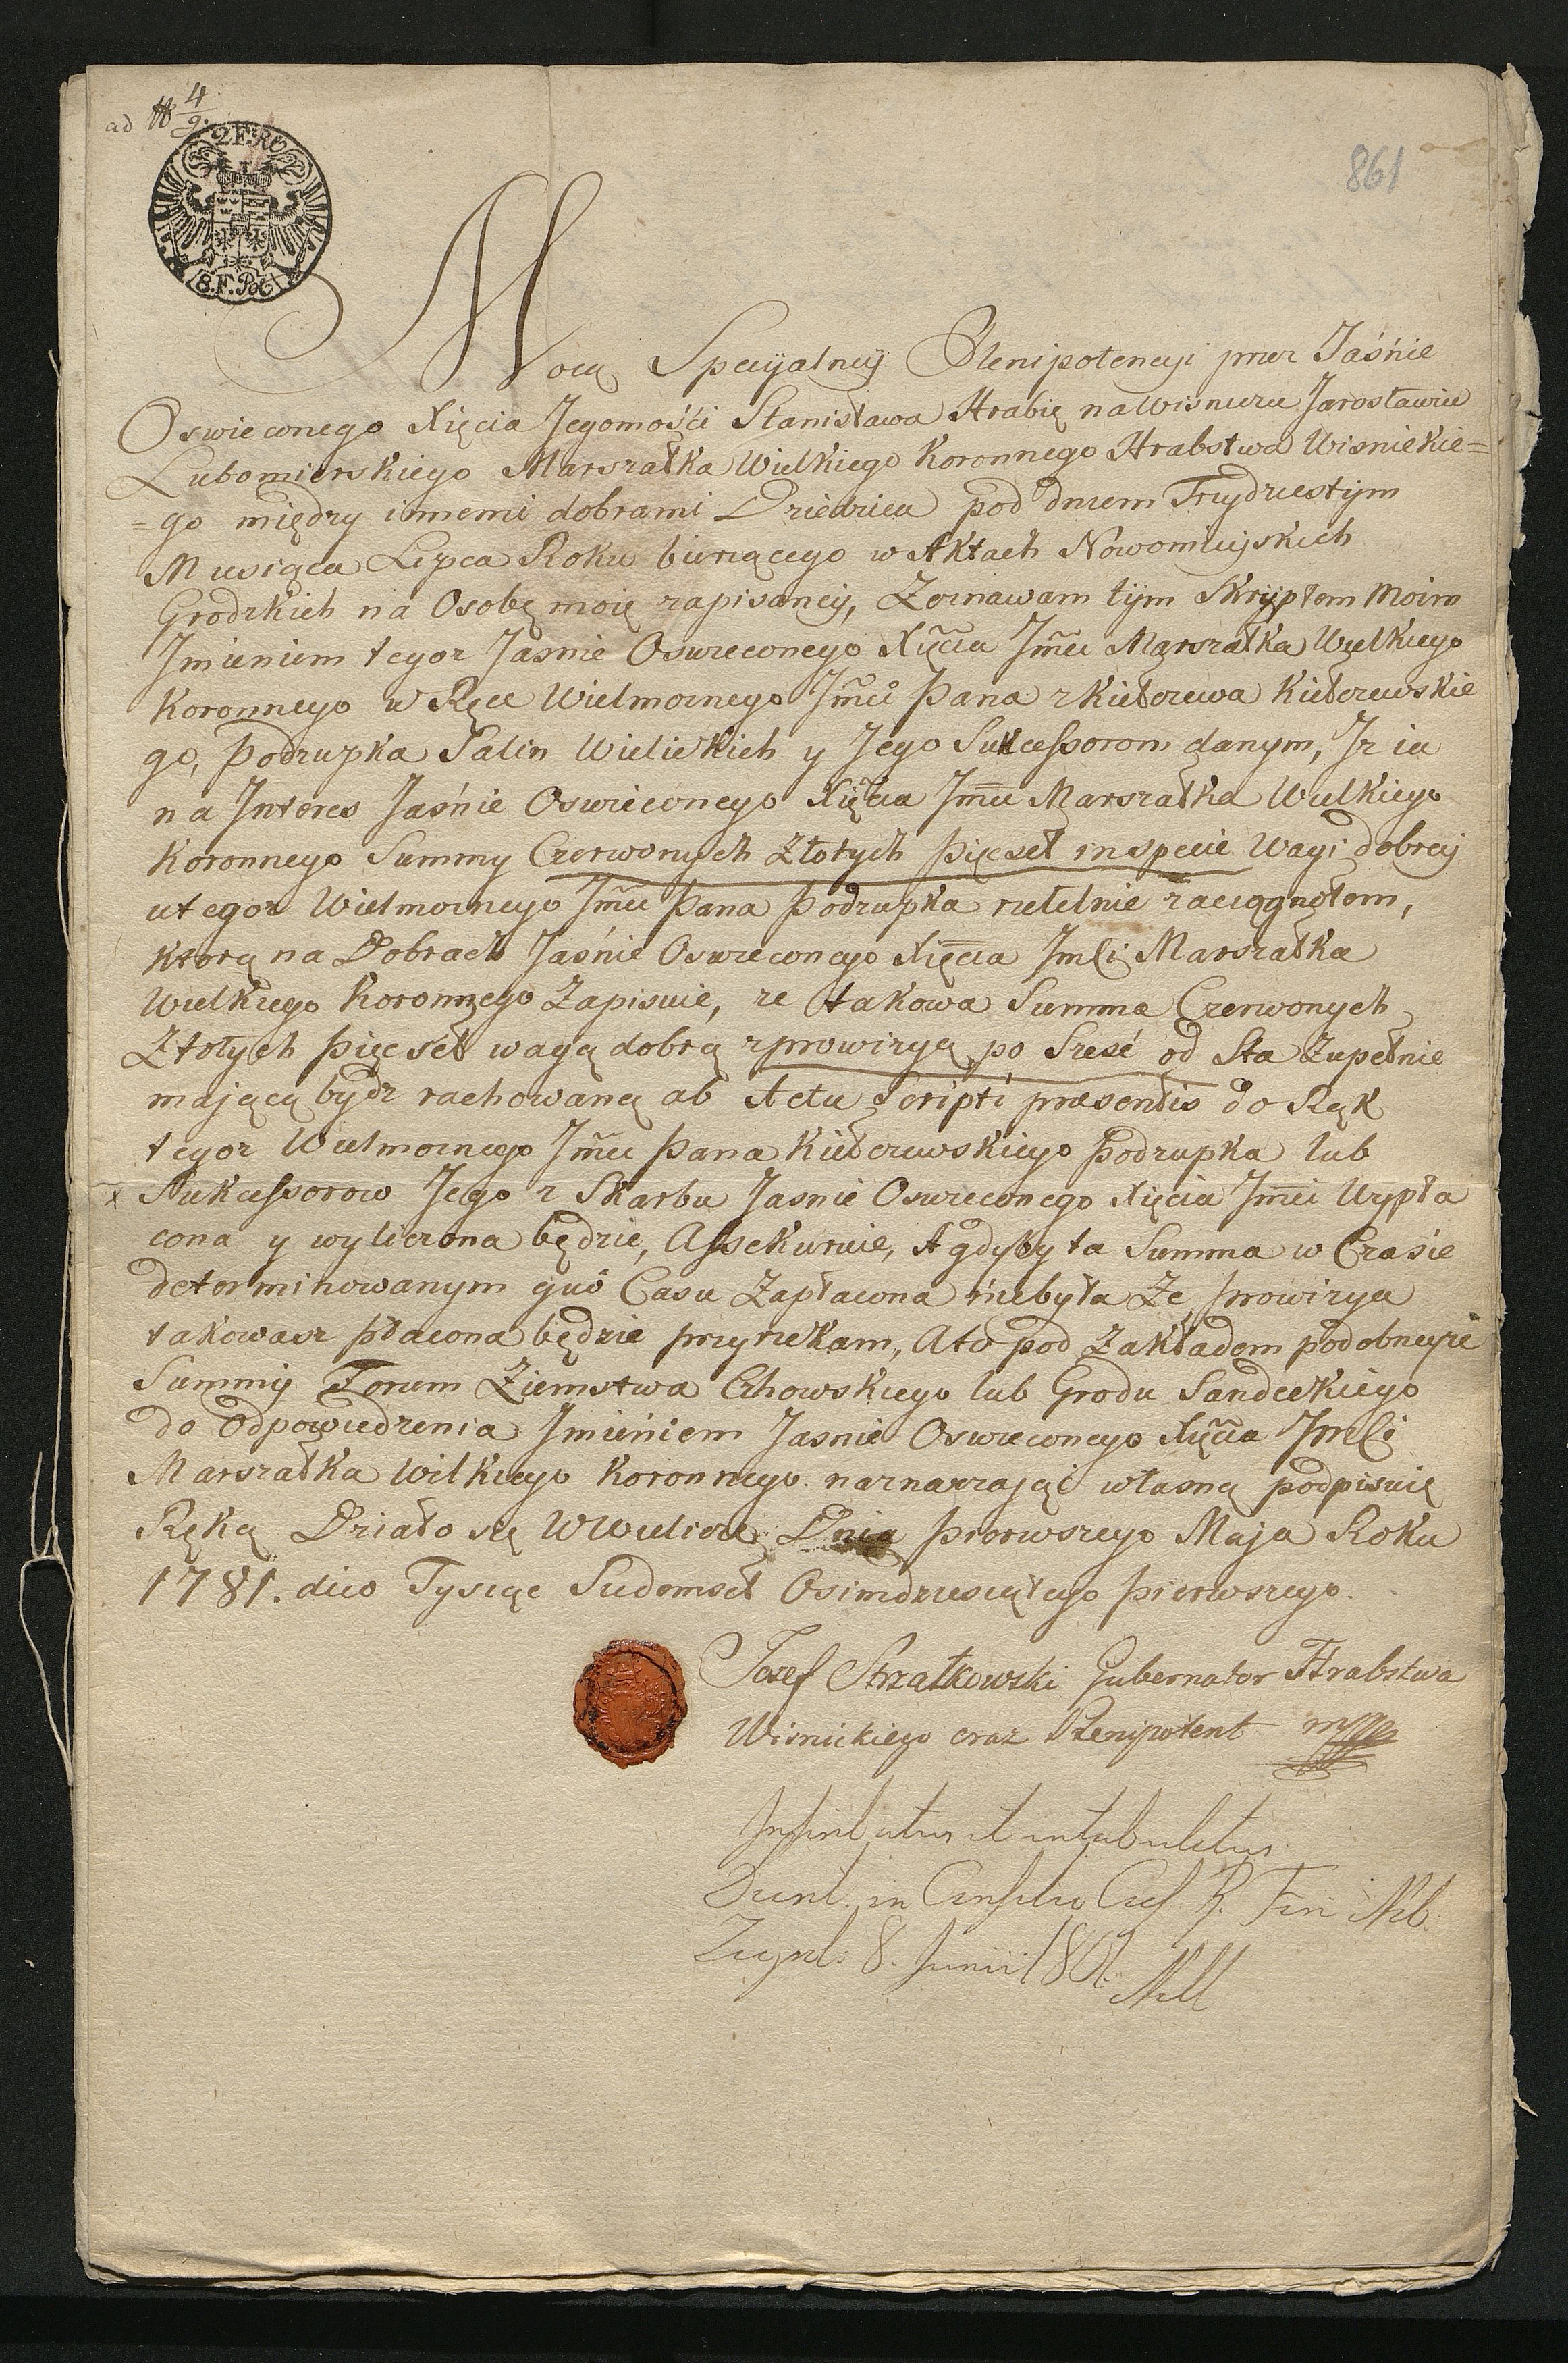 ad 4/9.
2 F. R
8. F. Pol
861
Mocą Specyalney Plenipotencyi przez Jaśnie
Oswieconego Xięcia Jegomości Stanisława Hrabię na Wisniczu Jarosławiu
Lubomierskiego Marszałka Wielkiego Koronnego Hrabstwa Wisnickie=
=go między innemi dobrami Dziedzica pod dniem Trzydziestym
Miesiąca Lipca Roku bieżącego w Aktach Nowomieyskich
Grodzkich na Osobę moię zapisaney, Zeznawam tym Skryptem Moim
Jmieniem tegoz Jasnie Oswieconego Xięcia Jmci Marszałka Wielkiego
Koronnego w Ręce Wielmoznego Jmci Pana z Kiełczewa Kiełczewskie
go, Podzupka Salin Wielickich y Jego Sukcessorom danym, Jz ia
na Jnteres Jaśnie Oswieconego Xięcia Jmci Marszałka Wielkiego
Koronnego Summy Czerwonych Złotych Pięcset in specie Wagi dobrey
u tegoz Wielmoznego Jmci Pana Podzupka rzetelnie zaciągnąłem,
ktorą na Dobrach Jaśnie Oswieconego Xięcia Jmści Marszałka
Wielkiego Koronnego Zapisuie, ze takowa Summa Czerwonych
Złotych Pięcset wagą dobrą z prowizyą po Szesć od Sta Zupełnie
maiącą bydz rachowaną ab Actu Scripti præsentis do Rąk
tegoz Wielmoznego Jmci Pana Kiełczewskiego Podzupka lub
x Sukcessorow Jego z Skarbu Jasnie Oswieconego Xięcia Jmci Wypła
cona y wyliczona będzie, Assekuruie, A gdyby ta Summa w Czasie
determinowanym quo Casu Zapłacona niebyła Ze prowizya
takowasz płacona będzie przyrzekam, Ato pod Zakładem podobneyże
Summy Forum Ziemstwa Czhowskiego lub Grodu Sandeckiego
do Odpowiedzenia Jmieniem Jasnie Oswieconego Xięcia Jmści
Marszałka Wilkiego Koronnego naznaczaiąc własną podpisuię
Ręką Działo się w Wieliczce Dnia Pierwszego Maja Roku
1781. dico Tysiąc Siedemset Osimdziesiątego Pierwszego.
Jozef Strzałkowski Gubernator Hrabstwa
Wisnickiego oraz Plenipotent mppa
Jnsinuatus et intabulatus
Sunt. in Consilio Caes. R.
8. Junii 1801.